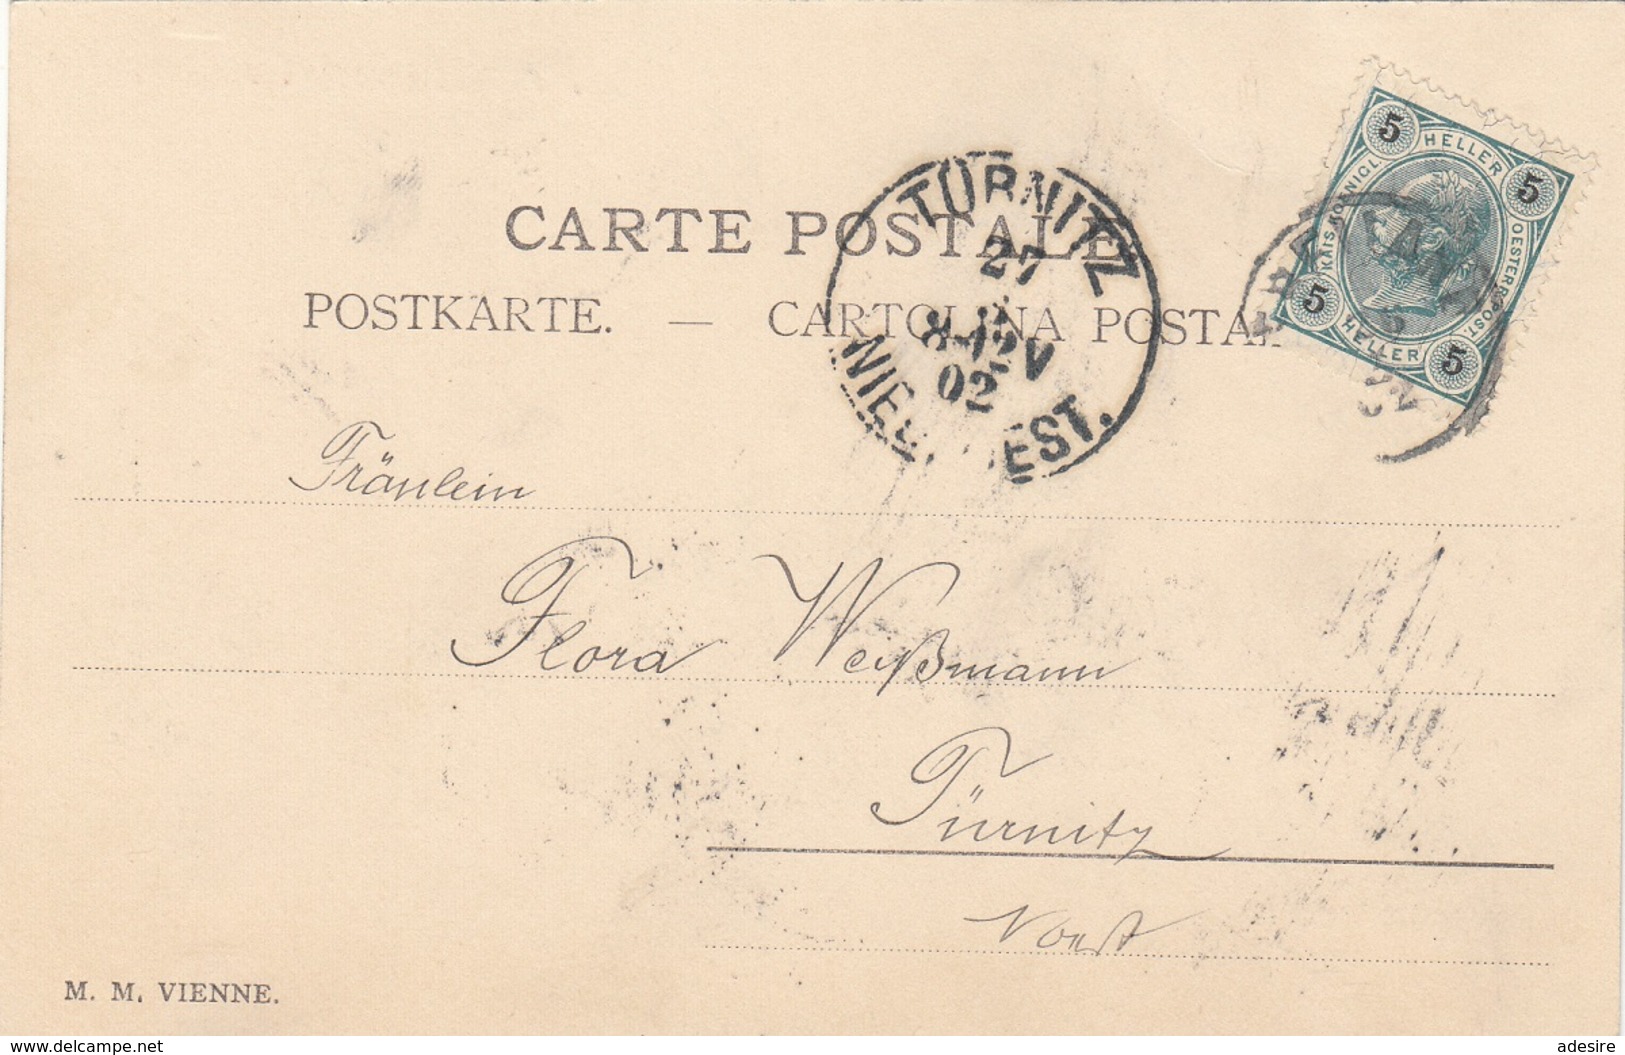 CARTE POSTALE
POSTKARTE. — CARTOLINA POSTA
TÜRNITZ
27
8-12 V
02
EST.
5 HELLER 5
KAIS. KÖNIGL.
OESTERR. POST.
5 HELLER 5
Fräulein
Flora Weißmann
Türnitz
M. M. VIENNE.
www.delcampe.net
adesire